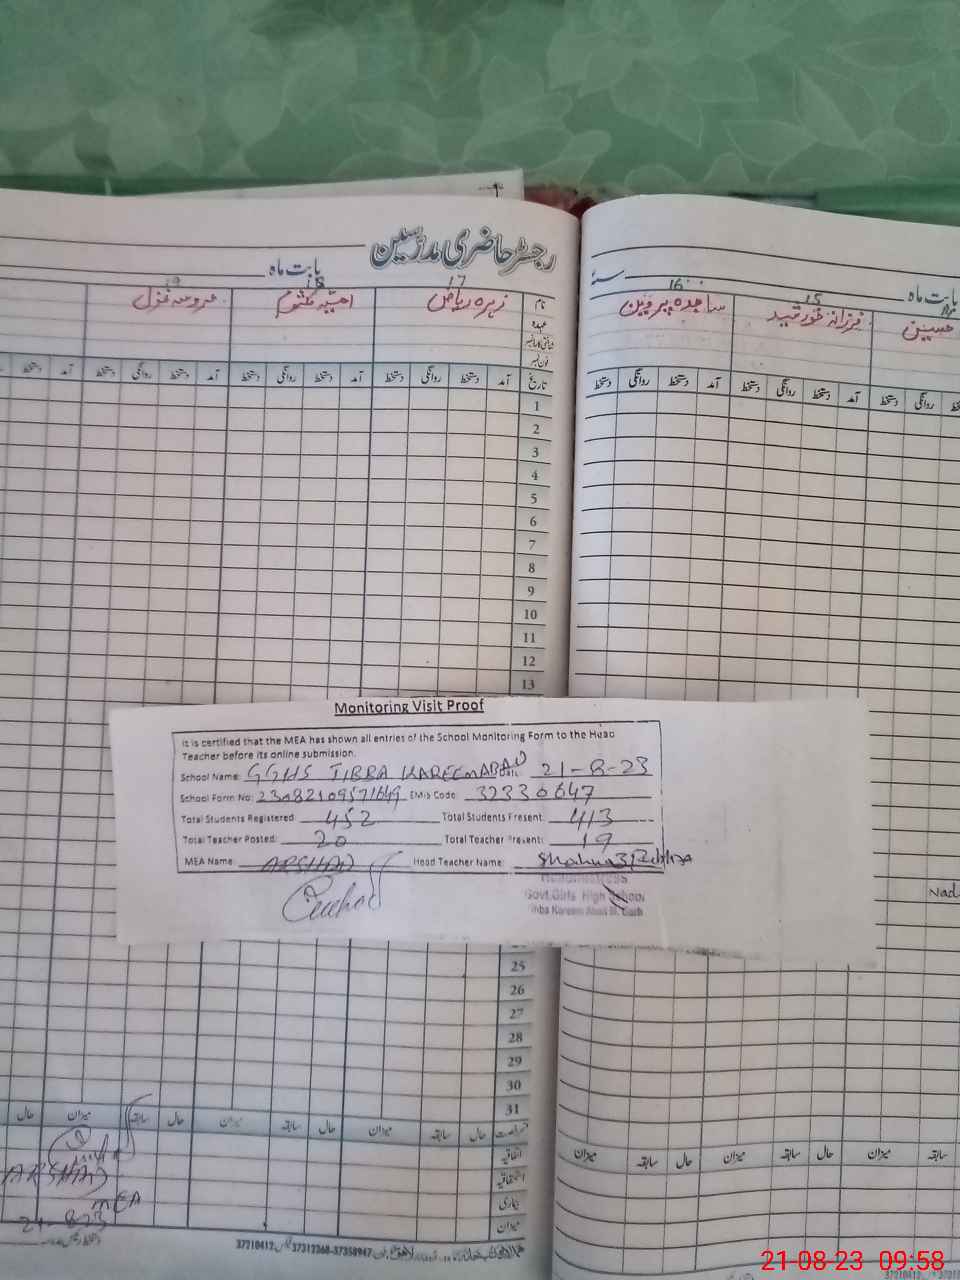 رجسٹر حاضری مدرسین
بابت ماہ
17
18
19
نام زہرہ ریاض
عہدہ
فون نمبر
تاریخ آمد دستخط روانگی دستخط آمد دستخط روانگی دستخط آمد دستخط روانگی دستخط آمد دستخط
1
2
3
4
5
6
7
8
9
10
11
12
13
بابت ماہ سنہ
15
16
فرزانہ خورشید ساجدہ پروین
روانگی دستخط آمد دستخط روانگی دستخط آمد دستخط روانگی دستخط
Monitoring Visit Proof
It is certified that the MEA has shown all entries of the School Monitoring Form to the Head
Teacher before its online submission.
School Name: GGHS TIBBA KAREEMABAD Date 21-8-23
School Form No: 23082109571649 EMIS Code: 32330647
Total Students Registered: 452 Total Students Present: 413
Total Teacher Posted: 20 Total Teacher Present: 19
MEA Name: ARSHAD Head Teacher Name:
Headmistress
Govt.Girls High School
Nad
25
26
27
28
29
30
31
حال سابقہ میزان حال سابقہ میزان حال سابقہ میزان حال
اتفاقیہ
استحقاقیہ
بیماری
میزان
سابقہ میزان حال سابقہ میزان حال سابقہ میزان
ARSHAD
MEA
21-8-23
37210412 37312368-37358947
21-08-23 09:58